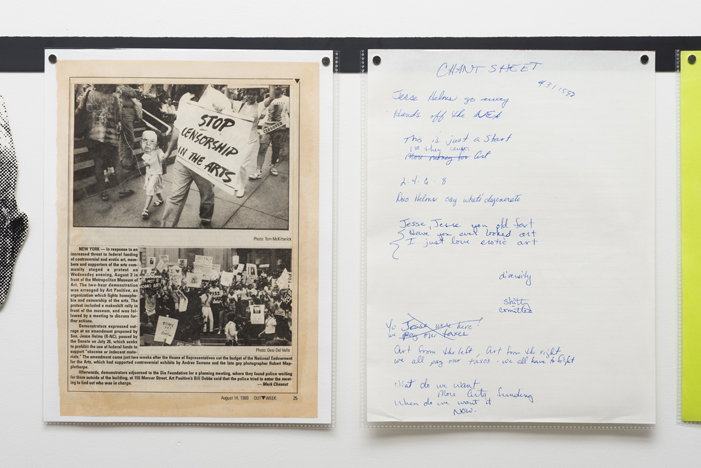 STOP
CENSORSHIP
IN THE ARTS
Photo: Tom McKitterick
NEW YORK — In response to an
increased threat to federal funding
of controversial and erotic art, mem-
bers and supporters of the arts com-
munity staged a protest on
Wednesday evening, August 2 in
front of the Metropolitan Museum of
Art. The two hour demonstration
was arranged by Art Positive, an
organization which fights homopho-
bia and censorship of the arts. The
protest included a makeshift rally in
front of the museum, and was fol-
lowed by a meeting to discuss fur-
ther actions.
Demonstrators expressed out-
rage at an amendment proposed by
Sen. Jesse Helms (R-NC), passed by
the Senate on July 26, which seeks
to prohibit the use of federal funds to
support "obscene or indecent mate-
rials." The amendment came just two weeks after the House of Representatives cut the budget of the National Endowment
for the Arts, which had supported controversial exhibits by Andres Serrano and the late gay photographer Robert Map-
plethorpe.
Afterwards, demonstrators adjourned to the Dia Foundation for a planning meeting, where they found police waiting
for them outside of the building, at 155 Mercer Street. Art Positive's Bill Dobbs said that the police tried to enter the meet-
ing to find out who was in charge.
— Mark Chesnut
August 14, 1989 OUT▼WEEK 25
CHANT SHEET
Jesse Helms go away
Hands off the NEA
This is just a Start
Art
2 4 6 8
Does Helms say what's degenerate
Jesse, Jesse you old fart
Have you ever looked at art
I just love erotic art
diversity
shitty
committee
Art from the left, Art from the right
we all pay our taxes - we all have to fight
What do we want
More Arts funding
When do we want it
NOW.